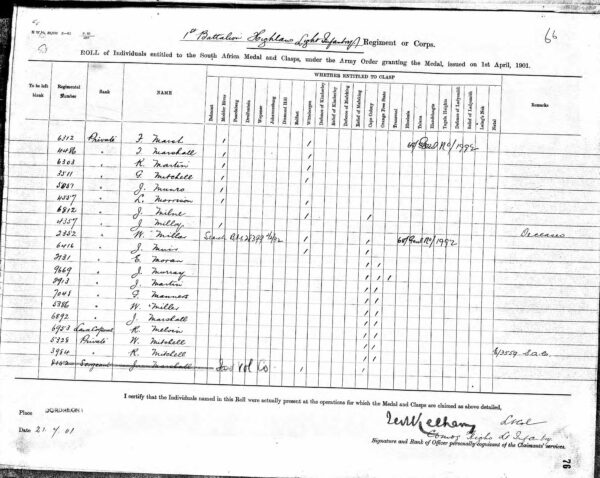 66
1st Battalion Highland Light Infantry Regiment or Corps.
ROLL of Individuals entitled to the South Africa Medal and Clasps, under the Army Order granting the Medal, issued on 1st April, 1901.
WHETHER ENTITLED TO CLASP
To be left blank Regimental Number Rank NAME Belmont Modder River Paardeberg Driefontein Wepener Johannesburg Diamond Hill Belfast Wittebergen Defence of Kimberley Relief of Kimberley Defence of Mafeking Relief of Mafeking Cape Colony Orange Free State Transvaal Elandslaagte Tugela Heights Defence of Ladysmith Relief of Ladysmith Laing's Nek Natal Remarks
6312 Private F Marsh
4486 " J Marshall 1992
6303 " R Martin
3511 " G Mitchell
" J. Munro
4557 " L. Morrison
6812 " J. Milne
4357 " J Milloy
2352 " W. Millar 1992 Deceased
6416 " J. Muir
" E. Moran
9669 " J. Murray
" J. Martin
" F. Manners
5386 " W. Miller
6892 " J. Marshall
6953 Lance Corporal R. Melvin
5328 Private W. Mitchell
3984 " R. Mitchell
Sergeant J. Marshall
I certify that the Individuals named in this Roll were actually present at the operations for which the Medal and Clasps are claimed as above detailed,
Place
Date 21.7.01
Signature and Rank of Officer personally cognizant of the Claimants' services.
76